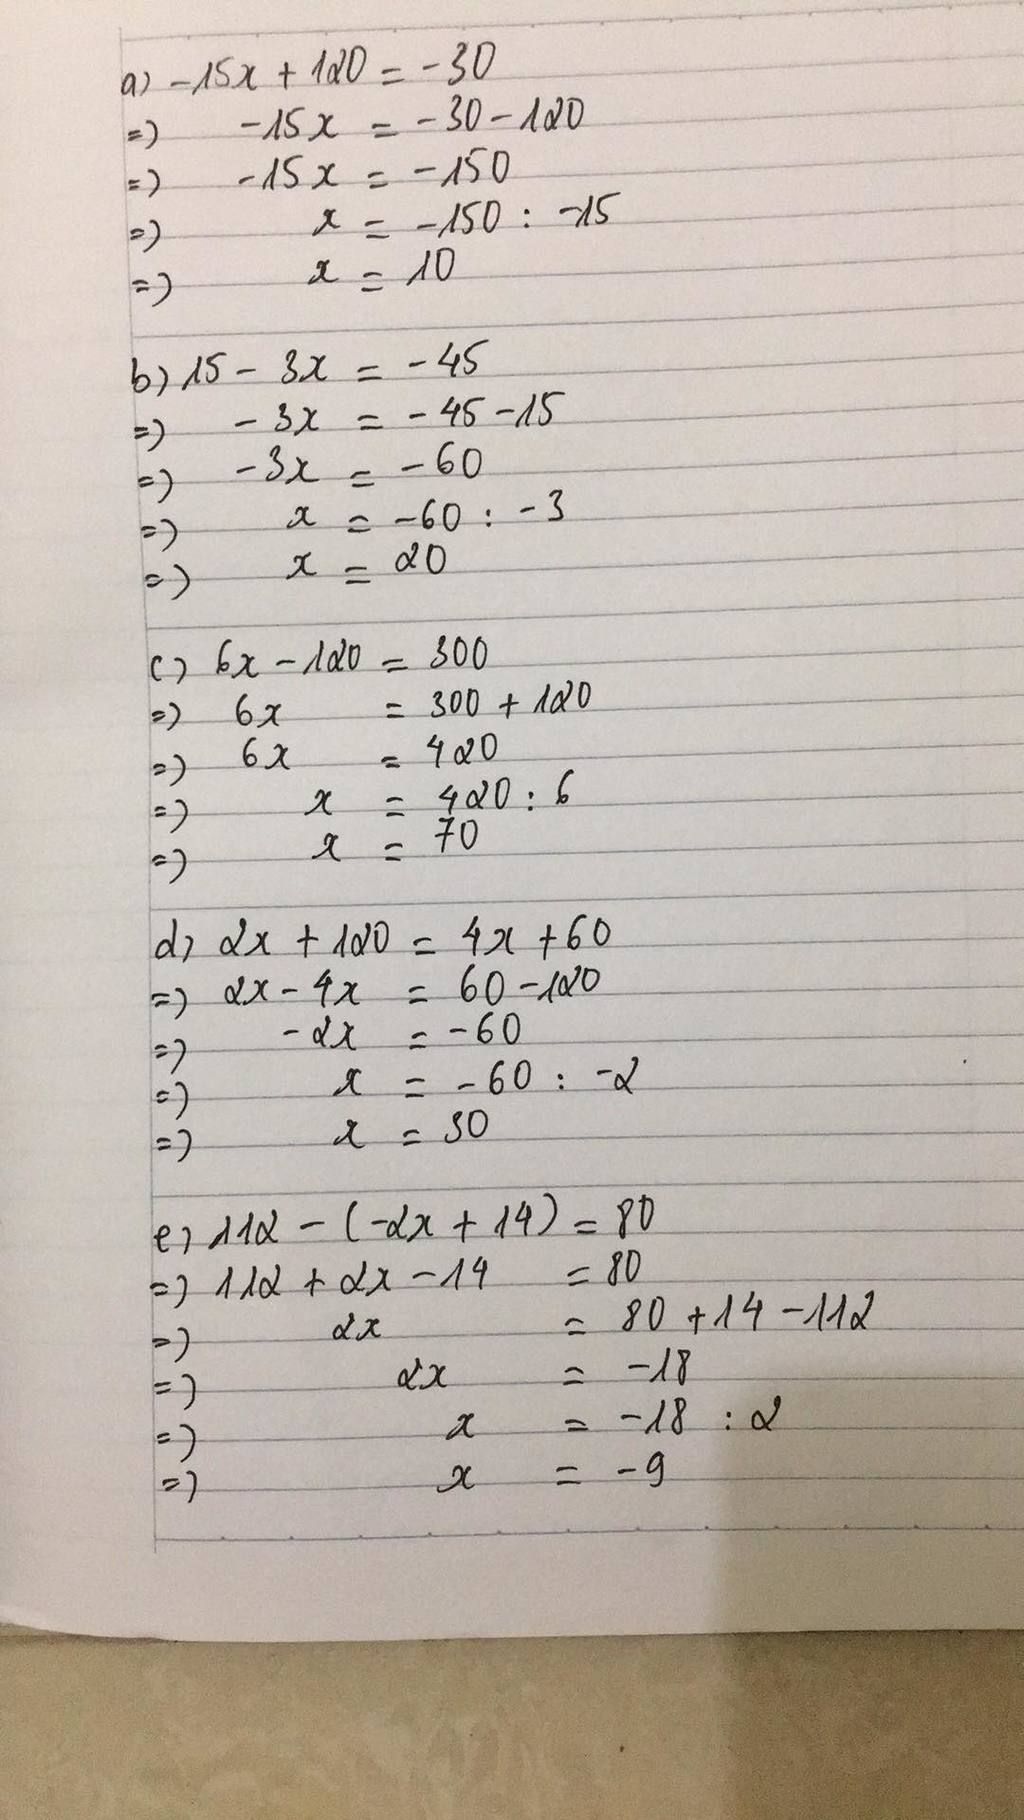 a) -15x + 120 = -30
=) -15x = -30 - 120
=) -15x = -150
=) x = -150 : -15
=) x = 10
b) 15 - 3x = -45
=) - 3x = - 45 - 15
=) -3x = -60
=) x = -60 : -3
=) x = 20
c) 6x - 120 = 300
=) 6x = 300 + 120
=) 6x = 420
=) x = 420 : 6
=) x = 70
d) 2x + 120 = 4x + 60
=) 2x - 4x = 60 - 120
=) -2x = -60
=) x = -60 : -2
=) x = 30
e) 112 - (-2x + 14) = 80
=) 112 + 2x - 14 = 80
=) 2x = 80 + 14 - 112
=) 2x = -18
=) x = -18 : 2
=) x = -9